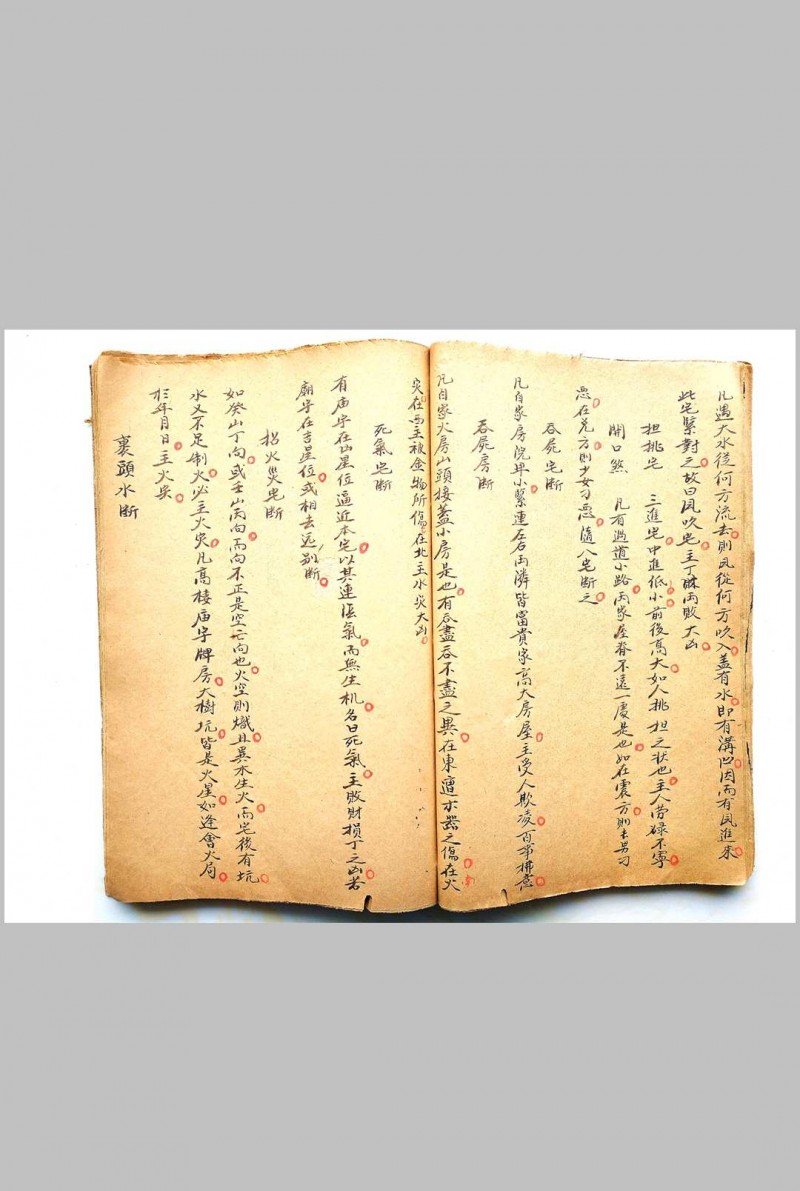 凡遇大水從何方流去則风從何方吹入盖有水即有溝凹因而有风進來
此宅緊對之故曰风吹宅主丁蔴两敗大凶
担挑宅　三進宅中進低小前後高大如人挑担之状也主人劳碌不寧
開口煞　凡有過道小路两家屋脊不遠一處是也如在震方則長男习
恶在兑方則少女习恶隨八宅断之
吞屍宅断
凡自家房院卑小緊連左右两隣皆富貴家高大房屋主受人欺凌百事拂意
吞屍房断
凡自家火房山頭接盖小房是也有吞盡吞不盡之異在東遭木器之傷在火
灾在西主被金物所傷在北主水灾大凶
死氣宅断
有庙宇在凶星位逼近本宅以其連氣而無生机名曰死氣主敗財損丁之凶若
廟宇在吉星位或相去远别断
招火災宅断
如癸山丁向或壬山丙向而向不正是空亡向也火空則熾且異木生火而宅後有坑
水又不足制火必主火灾凡高楼庙宇牌房大樹坑皆是火星如逢會火局
於年月日主火灾
裏頭水断